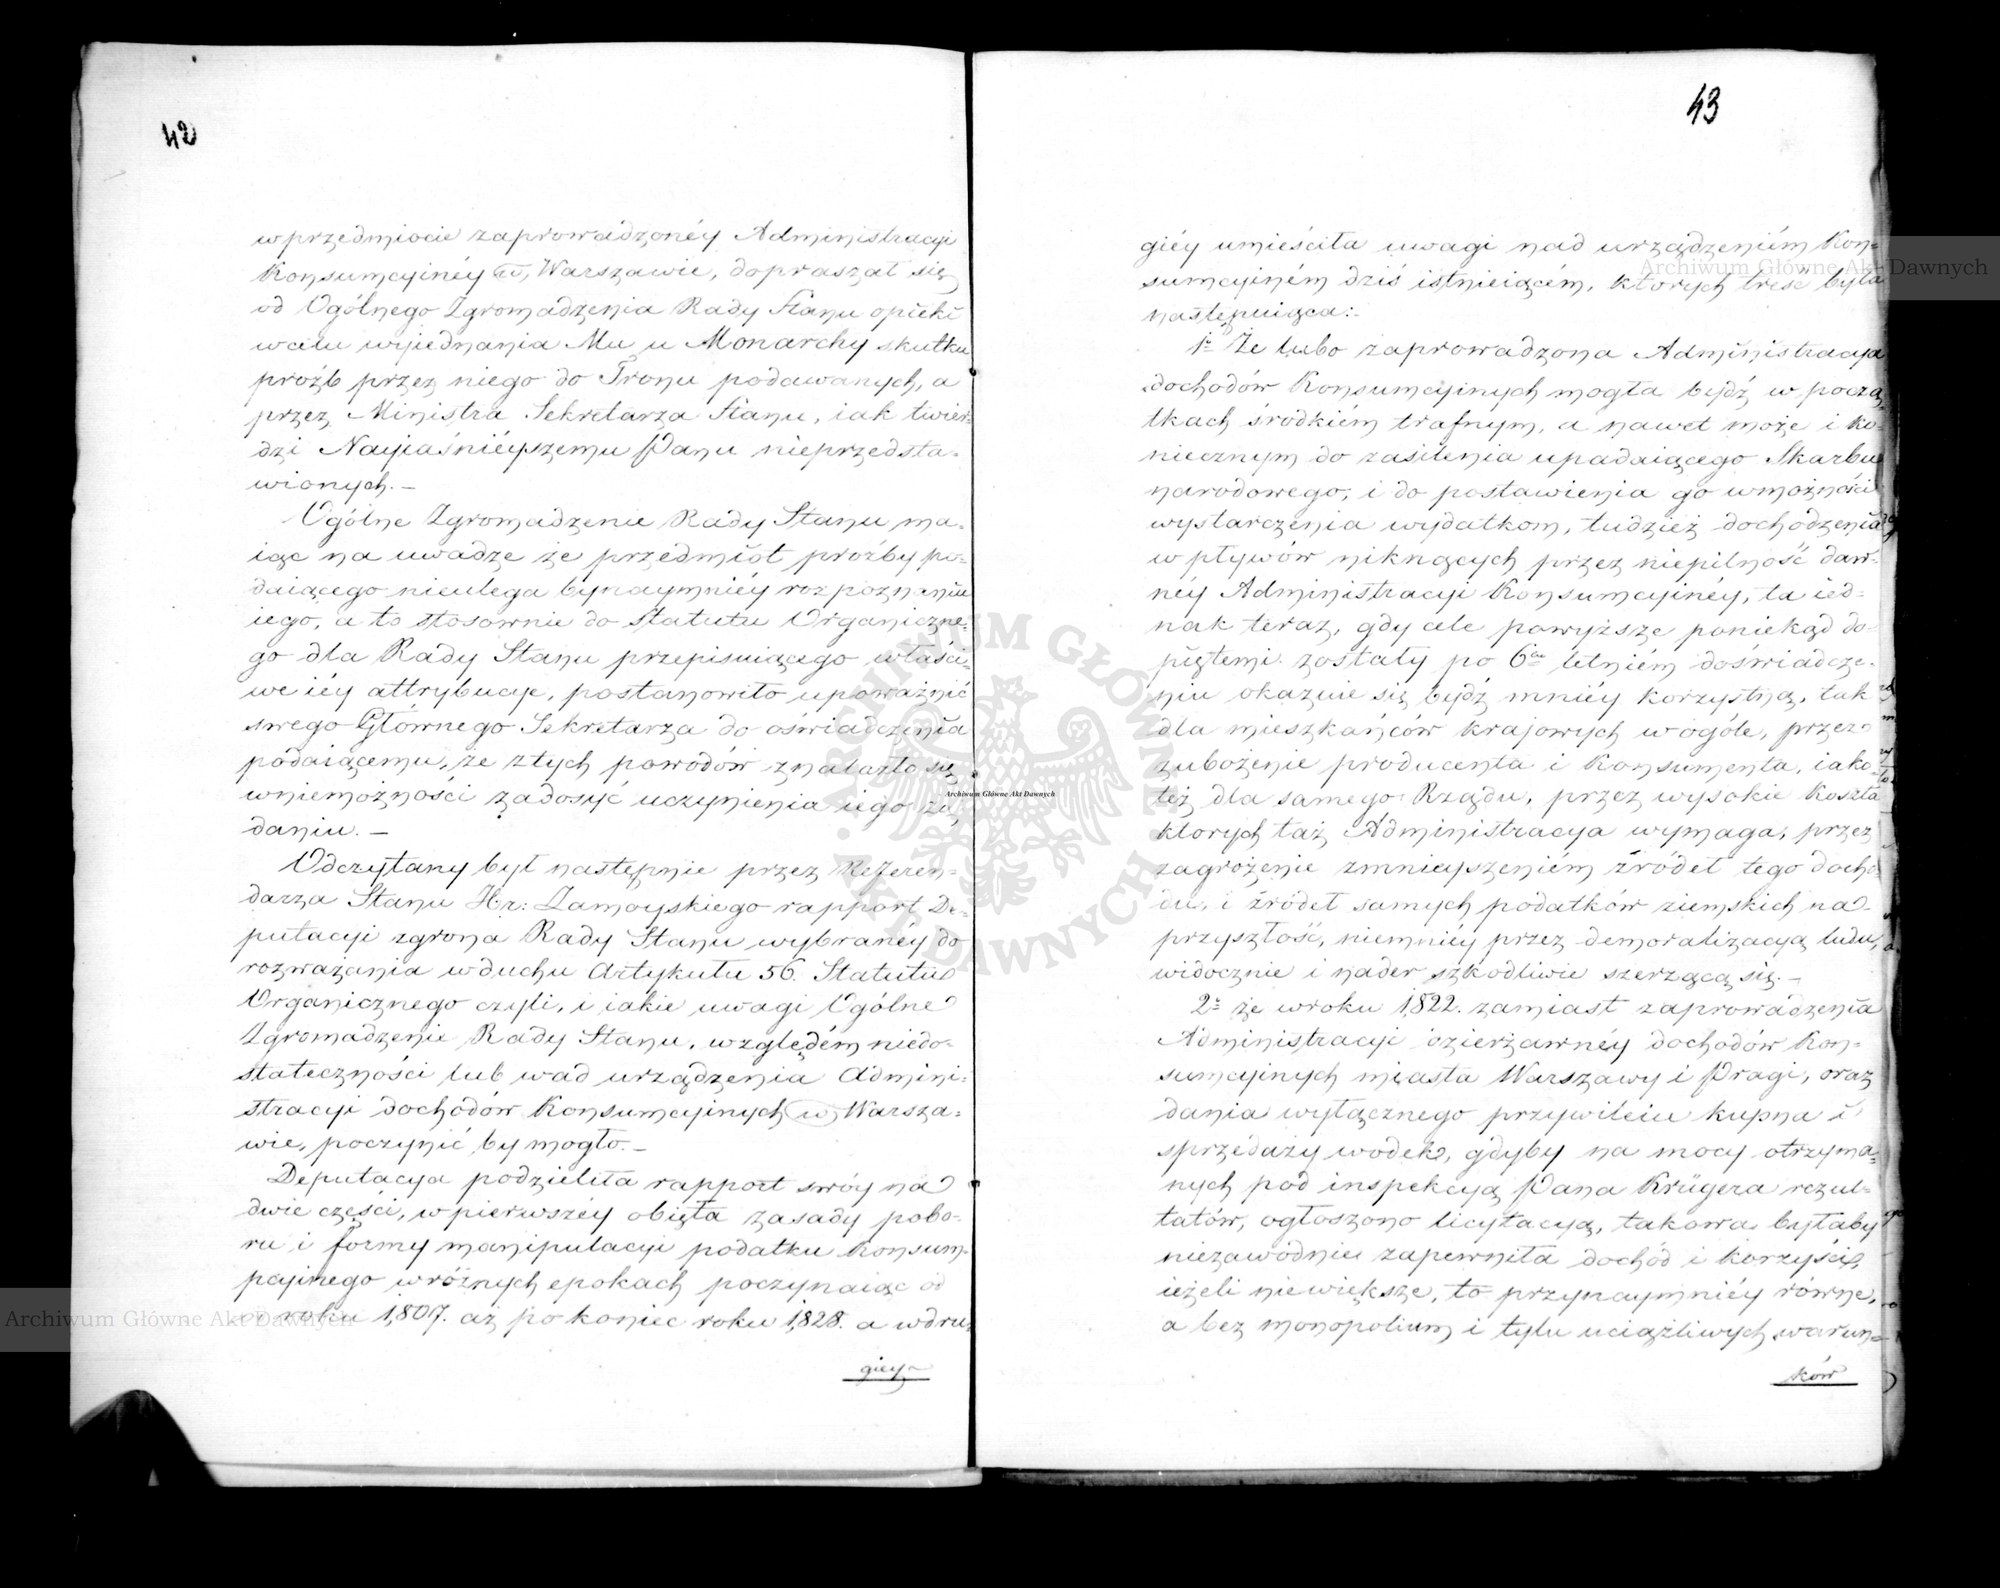 42
w przedmiocie zaprowadzonéy Administracyi
Konsumcyinéy w, Warszawie, dopraszał się
od Ogólnego Zgromadzenia Rady Stanu opieki
wcelu wyiednania Mu u Monarchy skutku
proźb przez niego do Tronu podawanych, a
przez Ministra Sekretarza Stanu, iak twier-
dzi Nayiaśniéyszemu Panu nieprzedsta-
wionych. —
Ogólne Zgromadzenie Rady Stanu ma-
iąc na uwadze że przedmiot proźby po-
daiącego nieulega bynaymniéy rozpoznaniu
iego, a to stosownie do Statutu Organiczne-
go dla Rady Stanu przepisuiącego właści-
we iéy attrybucye, postanowiło upoważnić
swego Głównego Sekretarza do oświadczenia
podaiącemu, że z tych powodów znalazło się
wniemożności zadosyć uczynienia iego żą-
daniu. —
Odczytany był następnie przez Referen-
darza Stanu Hr: Zamoyskiego rapport De-
putacyi zgrona Rady Stanu wybranéy do
rozważania wduchu Artykułu 56. Statutu
Organicznego czyli, i iakie uwagi Ogólne
Zgromadzenie Rady Stanu, względém niedo-
stateczności lub wad urządzenia Admini-
stracyi dochodów Konsumcyinych w Warsza-
wie, poczynić by mogło. —
Deputacya podzieliła rapport swóy na
dwie części, w pierwszéy obięła zasady pobo-
ru i formy manipulacyi podatku Konsum-
pcyinego wróżnych epokach poczynaiąc od
roku 1,807. aż po koniec roku 1,828. a wdru-
giey
43
giéy umieściła uwagi nad urządzeniém Kon-
sumcyiném dziś istnieiącém, których treść była
następuiąca:
1° Że lubo zaprowadzona Administracya
dochodów Konsumcyinych mogła bydź w począ-
tkach środkiém trafnym, a nawet może i ko-
niecznym do zasilenia upadaiącego Skarbu
narodowego, i do postawienia go wmożności
wystarczenia wydatkom, tudzież dochodzenia
wpływów niknących przez niepilność daw-
néy Administracyi Konsumcyinéy, ta ied-
nak teraz, gdy cele powyższe poniekąd do-
piętemi zostały po 6cio letniém doświadcze-
niu okazuie się bydź mniéy korzystną, tak
dla mieszkańców krajowych wogóle, przez
zubożenie producenta i Konsumenta, iako
też dla samego Rządu, przez wysokie koszta
których taż Administracya wymaga, przez
zagrożenie zmnieyszeniém źródeł tego docho-
du, i źródeł samych podatków ziemskich na
przyszłość, niemniéy przez demoralizacyą ludu,
widocznie i nader szkodliwie szerzącą się. —
2° że wroku 1,822. zamiast zaprowadzenia
Administracyi dzierżawnéy dochodów Kon-
sumcyinych miasta Warszawy i Pragi, oraz
dania wyłącznego przywileiu kupna i
sprzedaży wodek, gdyby na mocy otrzyma-
nych pod inspekcyą Pana Krügera rezul-
tatów, ogłoszono licytacyą, takowa byłaby
niezawodnie zapewniła dochód i korzyści,
ieżeli niewiększe, to przynaymniéy równe,
a bez monopolium i tylu uciążliwych warun-
ków
Archiwum Główne Akt Dawnych
Archiwum Główne Akt Dawnych
Archiwum Główne Akt Dawnych
ARCHIWUM GŁÓWNE AKT DAWNYCH